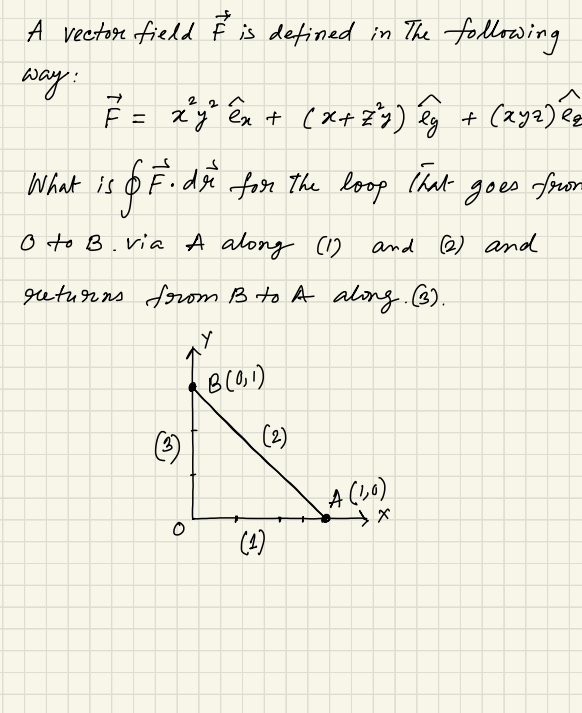 A vector field F⃗ is defined in The following
way:
F⃗ = x²y² êx + (x+z²y) êy + (xyz) êz
What is ∮F⃗·dr⃗ for the loop That goes from
O to B. via A along (1) and (2) and
returns from B to A along.(3).
Y
B(0,1)
(2)
(3)
A (1,0)
X
O
(1)